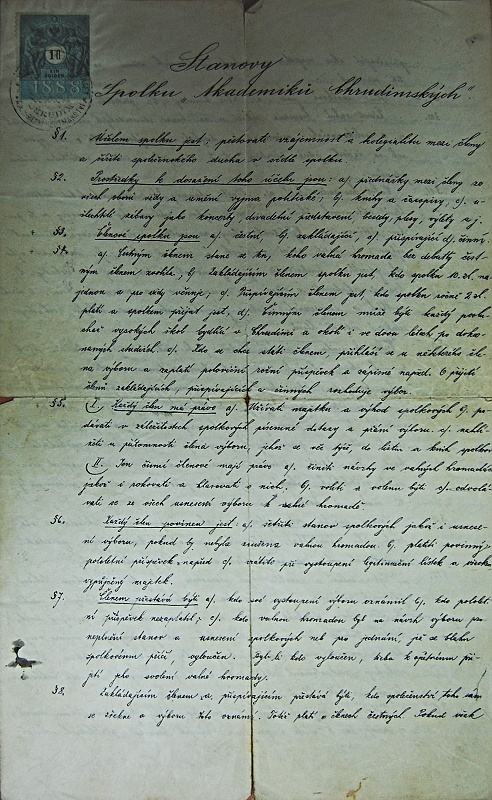 10
1888
CHRUDIM
Stanovy
Spolku „Akademiků Chrudimských".
§ 1. Účelem spolku jest: pěstovati vzájemnost a kollegialitu mezi členy
a šířiti společenského ducha v sídle spolku.
§ 2. Prostředky k dosažení toho účelu jsou: a). přednášky mezi členy ze
všech oborů vědy a umění vyjma politické; b). knihy a časopisy, c). u-
šlechtilé zábavy jako koncerty, divadelní představení, besedy, plesy, výlety a j.
§ 3. Členové spolku jsou a). čestní, b). zakládající, c). přispívající d). činní.
§ 4. a). Čestným členem stane se ten, koho valná hromada bez debatty čest-
ným členem zvolí, b). zakládajícím členem spolku jest, kdo spolku 10. zl. na-
jednou a pro vždy věnuje; c). Přispívajícím členem jest, kdo spolku ročně 2 zl.
platí a spolkem přijat jest, d). Činným členem může býti každý poslu-
chač vysokých škol bydlící v Chrudimi a okolí i ve dvou letech po doko-
naných studiích. e). Kdo se chce státi členem, přihlásí se u některého čle-
na výboru a zaplatí poloviční roční příspěvek a zápisné napřed. O přijetí
členů zakládajících, přispívajících a činných rozhoduje výbor.
§ 5. I. Každý člen má právo a). Užívati majetku a výhod spolkových b). po-
dávati v záležitostech spolkových písemné dotazy a přání výboru. c). nahlí-
žeti u přítomnosti člena výboru, jehož se věc týče, do listin a knih spolkov
II. Jen činní členové mají právo a). činiti návrhy ve valných hromadách
jakož i rokovati a hlasovati o nich. b). voliti a voleni býti c). odvolá-
vati se ze všech usnesení výboru k valné hromadě.
§ 6. Každý člen povinen jest: a). šetřiti stanov spolkových jakož i usnese-
ní výboru, pokud by nebyla zrušena valnou hromadou. b). platiti povinný
pololetní příspěvek napřed c). vrátiti při vystoupení legitimační lístek a všecek
vypůjčený majetek.
§ 7. Členem přestává býti a). kdo své vystoupení výboru oznámil b). kdo pololet-
ní příspěvek nezaplatil; c). kdo valnou hromadou byl na návrh výboru pro
neplnění stanov a usnesení spolkových neb pro jednání, jež se blahu
spolkovému příčí, vyloučen. Byl-li kdo vyloučen, třeba k opětnému při-
jetí jeho svolení valné hromady.
§ 8. Zakládajícím členem, a. přispívajícím přestává býti, kdo společenství toho sám
se zřekne a výboru toto oznámí. Totéž platí o členech čestných. Pokud však